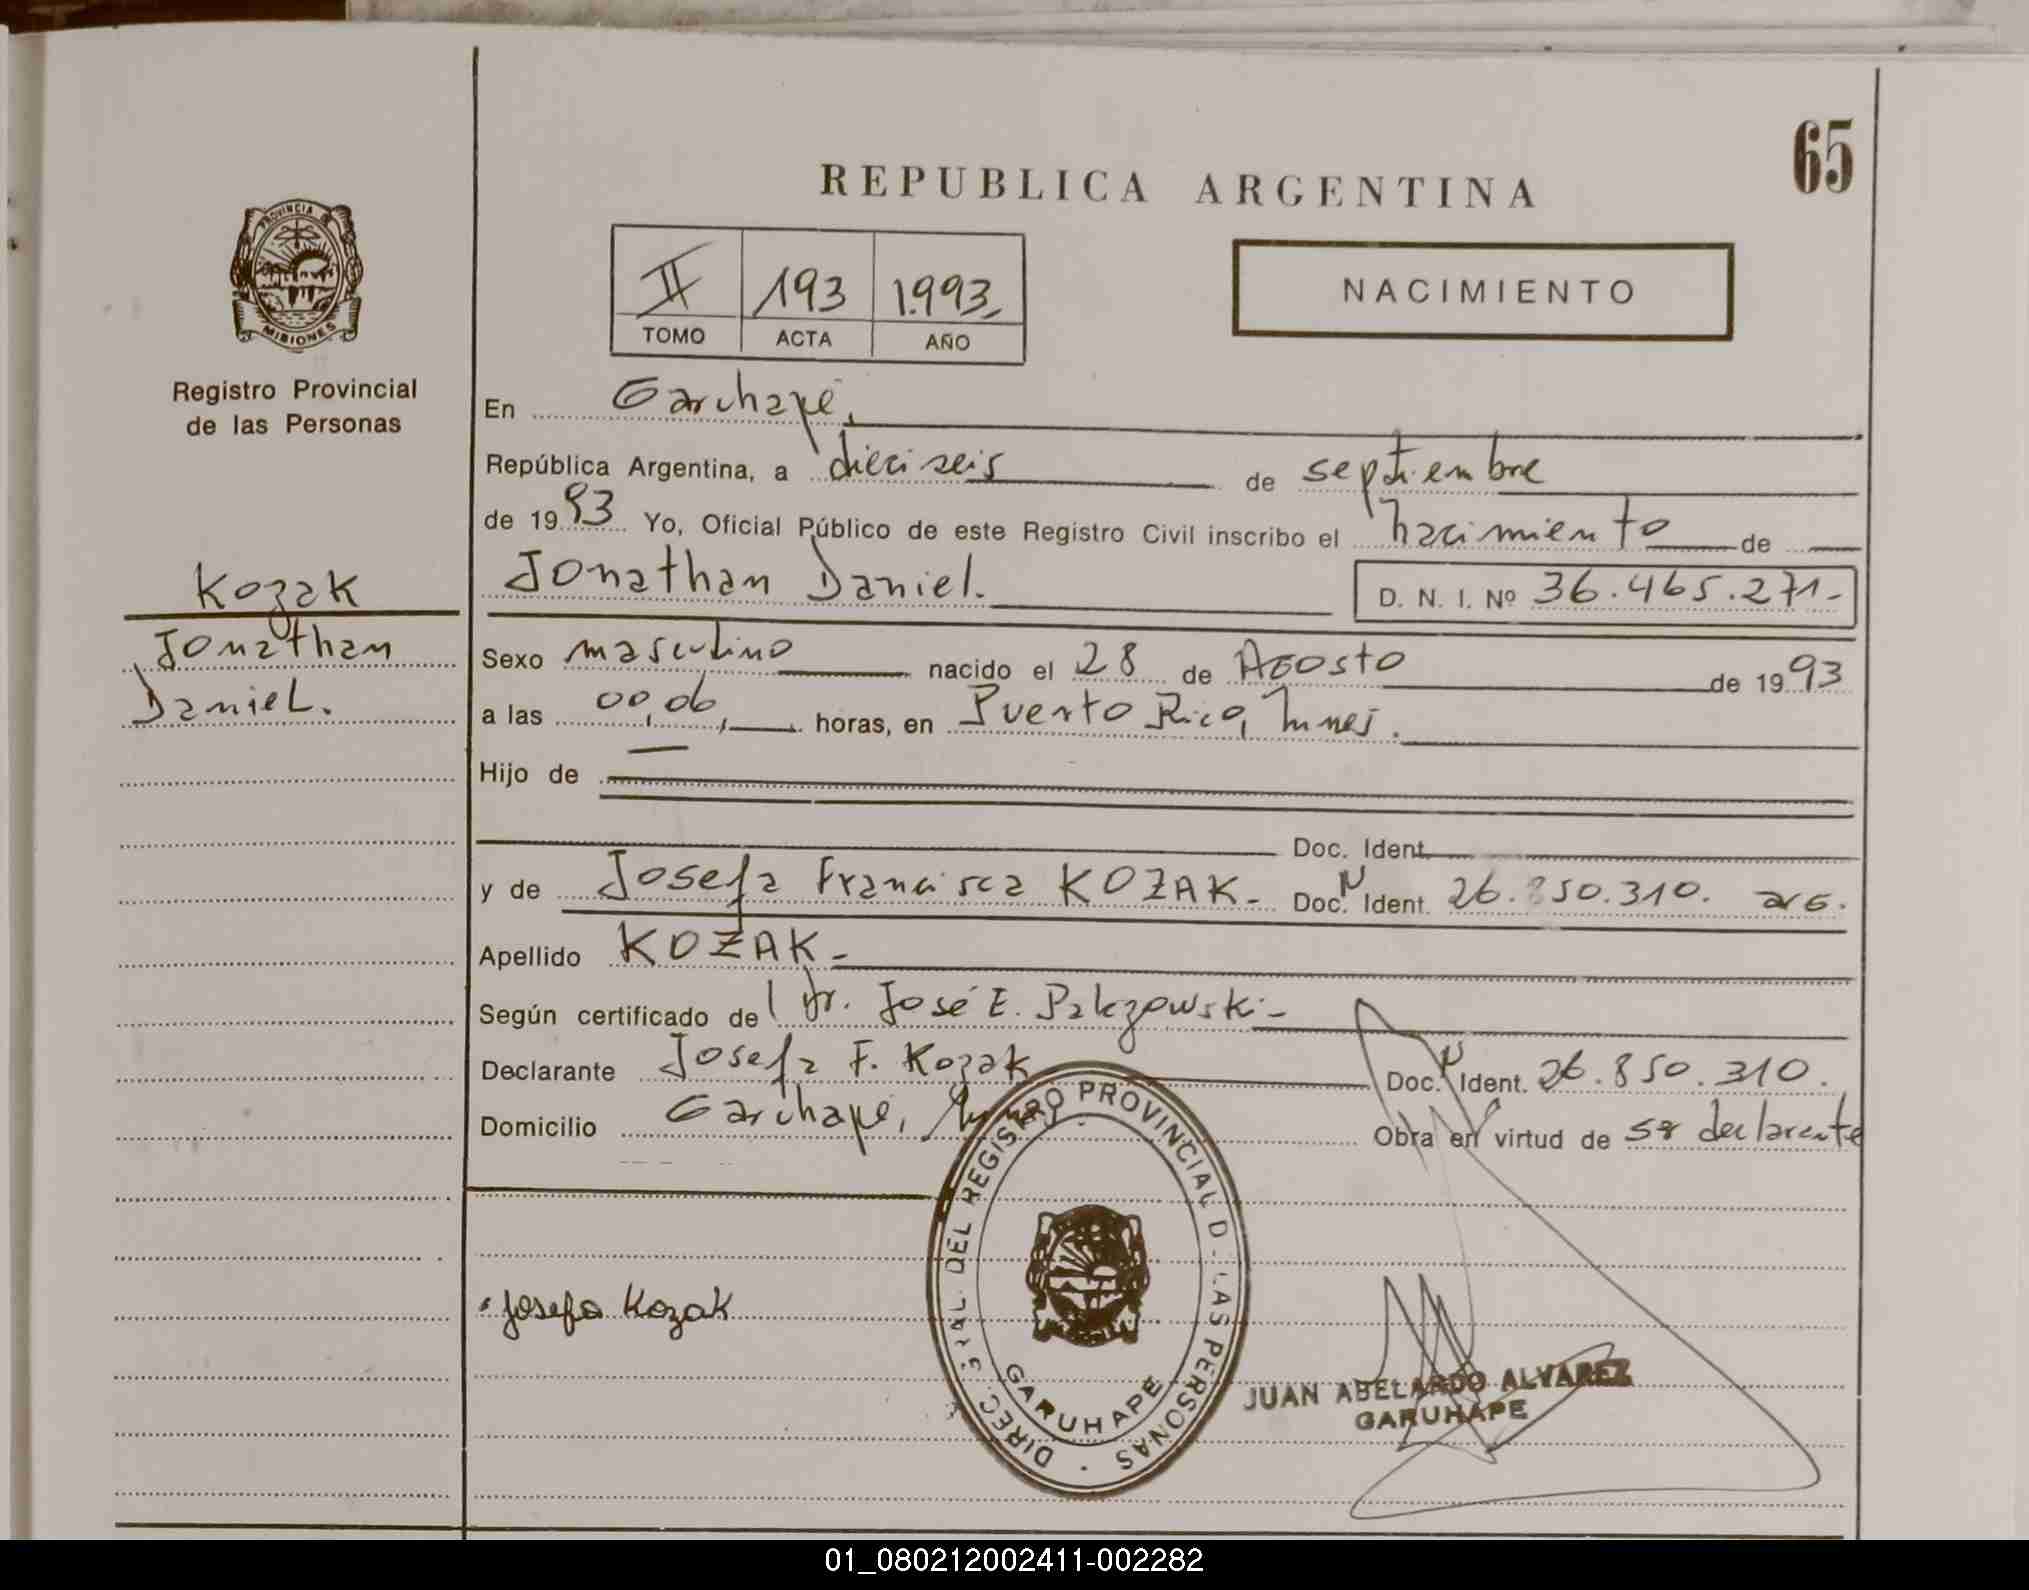 65
REPUBLICA ARGENTINA
PROVINCIA DE
MISIONES
Registro Provincial
de las Personas
II 193 1.993
TOMO ACTA AÑO
NACIMIENTO
En Garuhapé,
República Argentina, a dieciseis de septiembre
de 1993 Yo, Oficial Público de este Registro Civil inscribo el nacimiento de
Kozak
Jonathan
Daniel.
Jonathan Daniel. D. N. I. Nº 36.465.271-
Sexo masculino nacido el 28 de Agosto de 1993
a las 00,06, horas, en Puerto Rico,
Hijo de
Doc. Ident.
y de Josefa Francisca KOZAK- Doc. N Ident. 26.850.310. arg.
Apellido KOZAK-
Según certificado de Dr. José E.
Declarante Josefa F. Kozak Doc. N Ident. 26.850.310.
Domicilio Garuhapé, Obra en virtud de ser declarante
Josefa Kozak
DEL REGISTRO PROVINCIAL D LAS PERSONAS
GARUHAPE
JUAN ABELARDO ALVAREZ
GARUHAPE
01_080212002411-002282